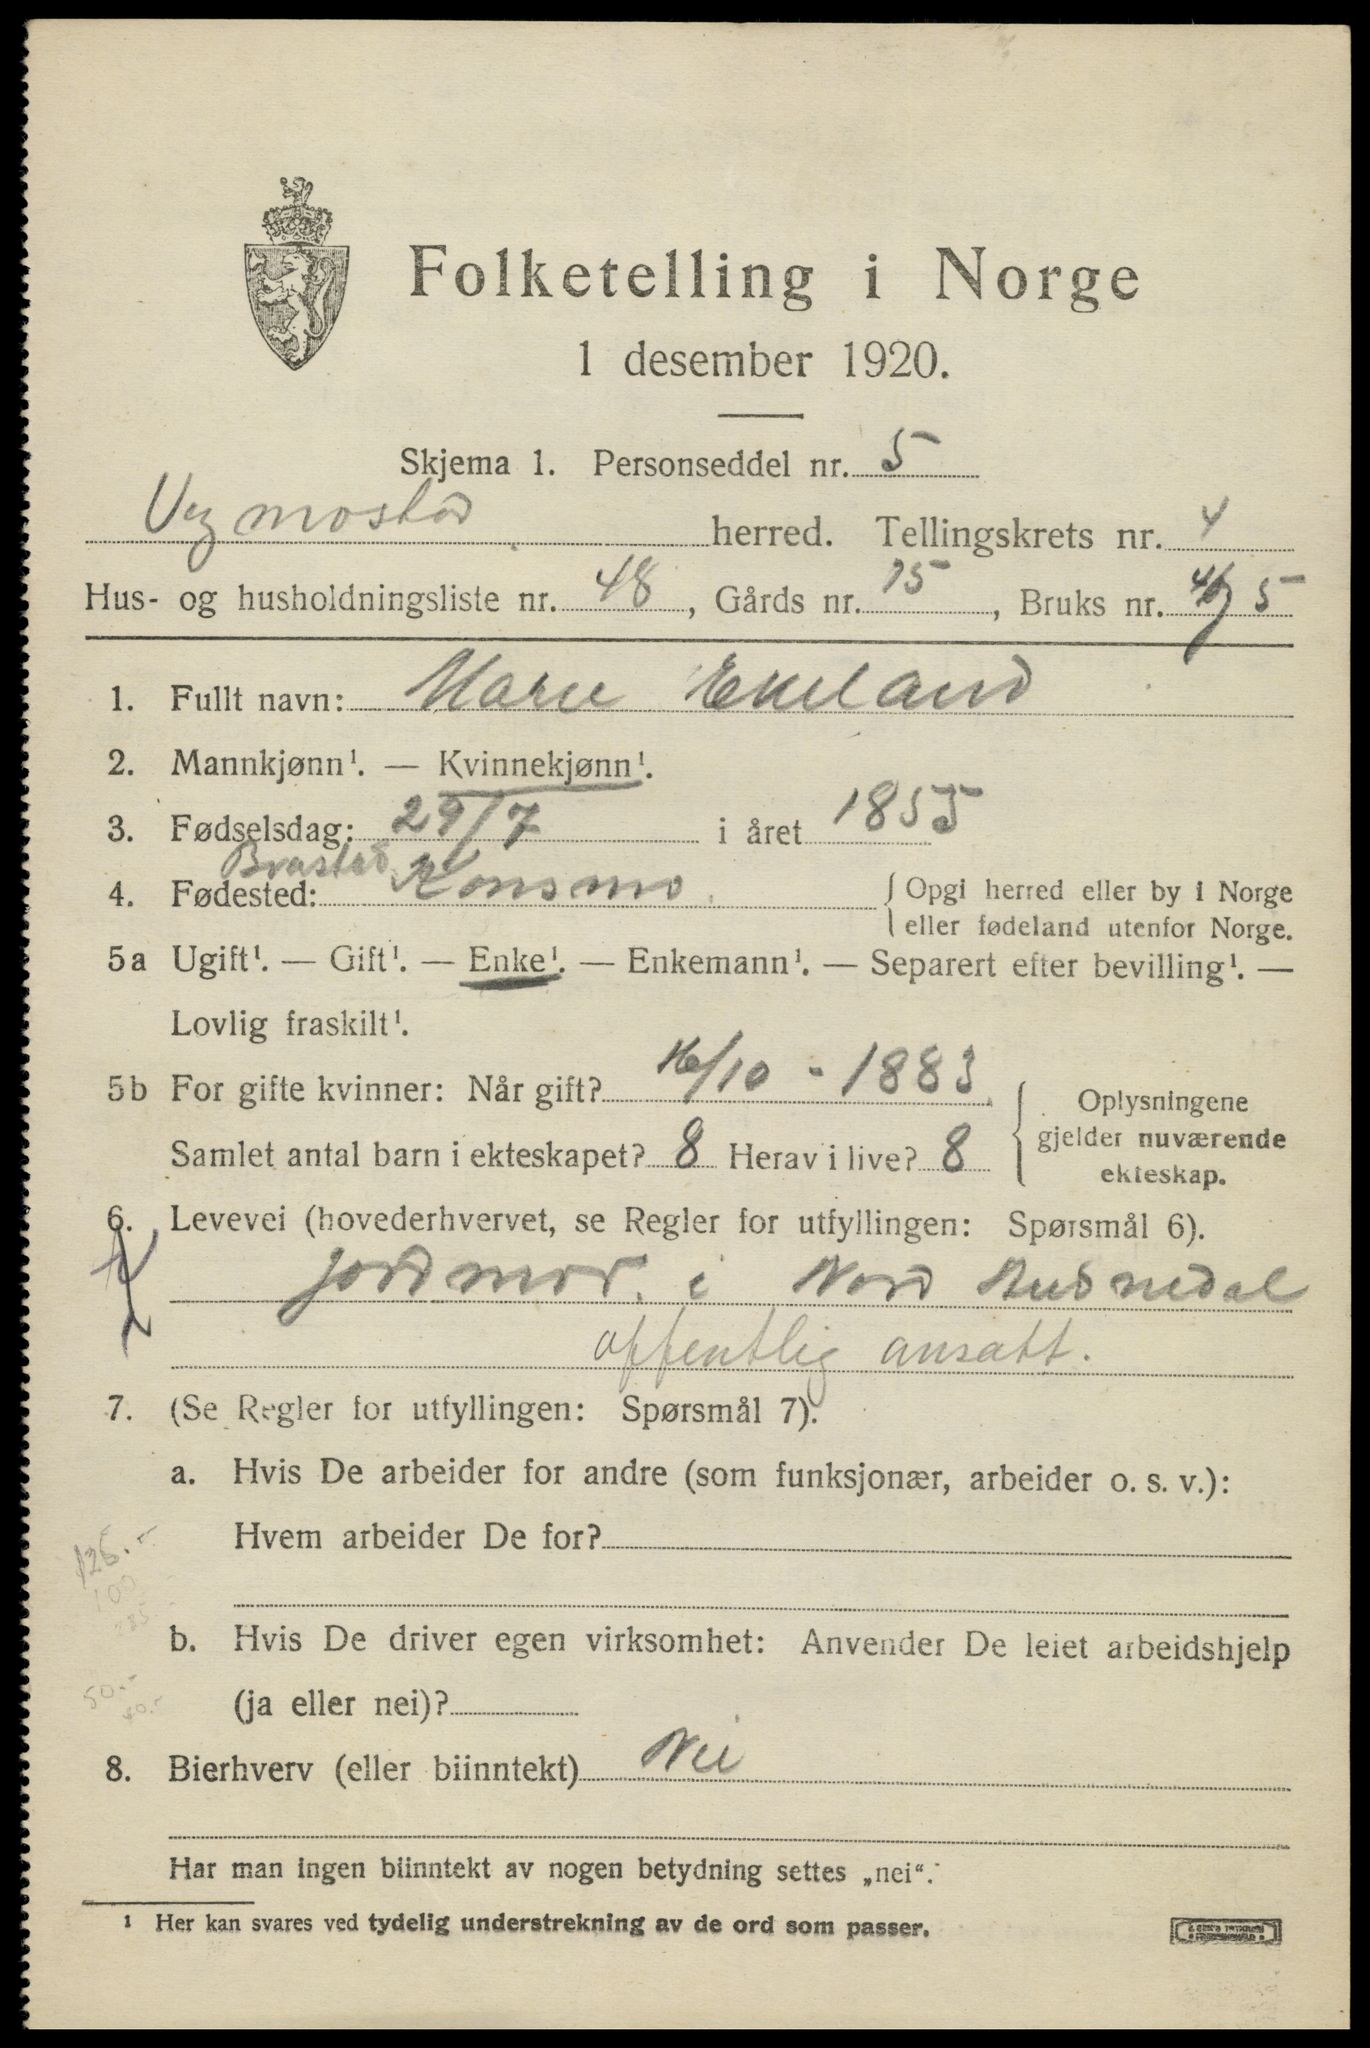 Folketelling i Norge
1 desember 1920.
Skjema 1. Personseddel nr. 5
Vigmostad herred. Tellingskrets nr. 4
Hus- og husholdningsliste nr. 48, Gårds nr. 15, Bruks nr. 5
1. Fullt navn: Marie Ekeland
2. Mannkjønn¹. — Kvinnekjønn¹.
3. Fødselsdag: 29/7 i året 1855
4. Fødested: Konsmo { Opgi herred eller by i Norge
eller fødeland utenfor Norge.
5a Ugift¹. — Gift¹. — Enke¹. — Enkemann¹. — Separert efter bevilling¹. —
Lovlig fraskilt¹.
5b For gifte kvinner: Når gift? 16/10 - 1883
Samlet antal barn i ekteskapet? 8 Herav i live? 8
{ Oplysningene
gjelder nuværende
ekteskap.
6. Levevei (hovederhvervet, se Regler for utfyllingen: Spørsmål 6).
Jordmor i Nord Audnedal
offentlig ansatt.
7. (Se Regler for utfyllingen: Spørsmål 7).
a. Hvis De arbeider for andre (som funksjonær, arbeider o. s. v.):
Hvem arbeider De for?
b. Hvis De driver egen virksomhet: Anvender De leiet arbeidshjelp
(ja eller nei)?
8. Bierhverv (eller biinntekt) Nei
Har man ingen biinntekt av nogen betydning settes „nei“.
¹ Her kan svares ved tydelig understrekning av de ord som passer.